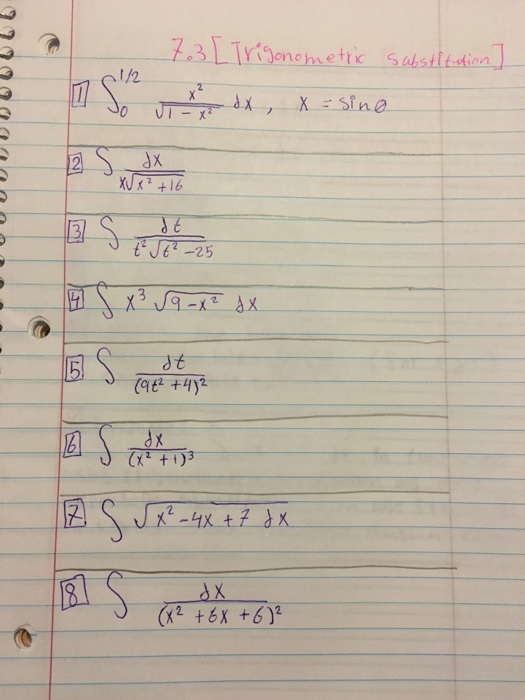 7.3 [Trigonometric substitution]
1 ∫₀^1/2 x²/√(1 - x²) dx, x = sinθ
2 ∫ dx/(x√(x² + 16))
3 ∫ dt/(t²√(t² - 25))
4 ∫ x³ √(9 - x²) dx
5 ∫ dt/(9t² + 4)²
6 ∫ dx/(x² + 1)³
7 ∫ √(x² - 4x + 7) dx
8 ∫ dx/(x² + 6x + 6)²